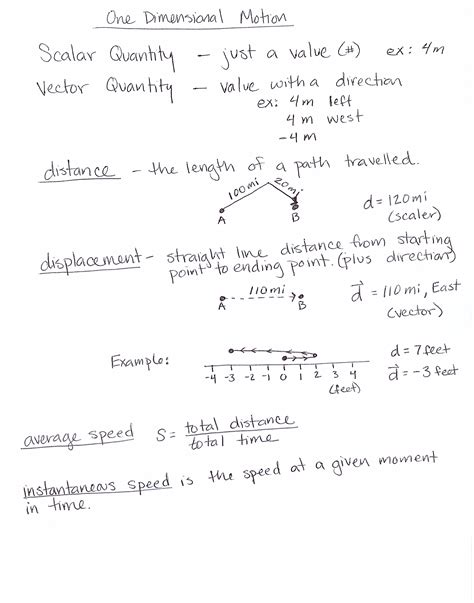 One Dimensional Motion
Scalar Quantity – just a value (#) ex: 4m
Vector Quantity – value with a direction
ex: 4m left
4m west
-4m
distance – the length of a path travelled.
100mi 20mi
A B
d = 120mi
(scaler)
displacement – straight line distance from starting
point to ending point. (plus direction)
110mi
A B
d⃗ = 110mi, East
(vector)
Example:
-4 -3 -2 -1 0 1 2 3 4
(feet)
d = 7feet
d⃗ = -3 feet
average speed S = total distance
total time
instantaneous speed is the speed at a given moment
in time.